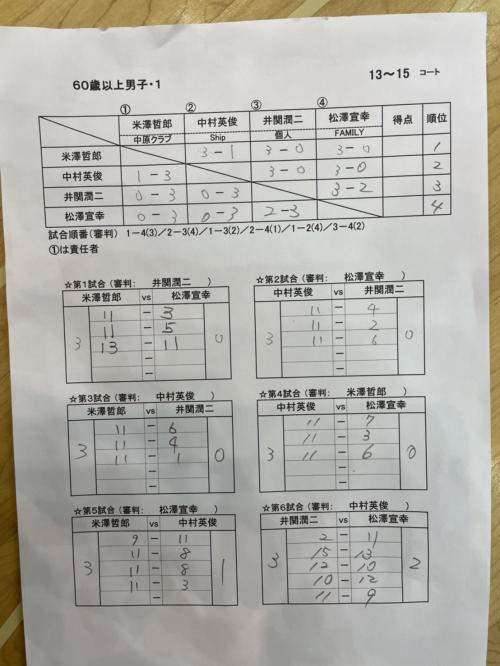 60歳以上男子・1
13～15 コート
① ② ③ ④
米澤哲郎 中村英俊 井関潤二 松澤宣幸 得点 順位
中原クラブ Ship 個人 FAMILY
米澤哲郎 3-1 3-0 3-0 1
中村英俊 1-3 3-0 3-0 2
井関潤二 0-3 0-3 3-2 3
松澤宣幸 0-3 0-3 2-3 4
試合順番(審判) 1-4(3)/2-3(4)/1-3(2)/2-4(1)/1-2(4)/3-4(2)
①は責任者
☆第1試合(審判: 井関潤二 )
米澤哲郎 vs 松澤宣幸
11 - 3
11 - 5
13 - 11
-
-
3 0
☆第2試合(審判: 松澤宣幸 )
中村英俊 vs 井関潤二
11 - 4
11 - 2
11 - 6
-
-
3 0
☆第3試合(審判: 中村英俊 )
米澤哲郎 vs 井関潤二
11 - 6
11 - 4
11 - 1
-
-
3 0
☆第4試合(審判: 米澤哲郎 )
中村英俊 vs 松澤宣幸
11 - 7
11 - 3
11 - 6
-
-
3 0
☆第5試合(審判: 松澤宣幸 )
米澤哲郎 vs 中村英俊
9 - 11
11 - 8
11 - 8
11 - 3
-
3 1
☆第6試合(審判: 中村英俊 )
井関潤二 vs 松澤宣幸
2 - 11
15 - 13
12 - 10
10 - 12
11 - 9
3 2